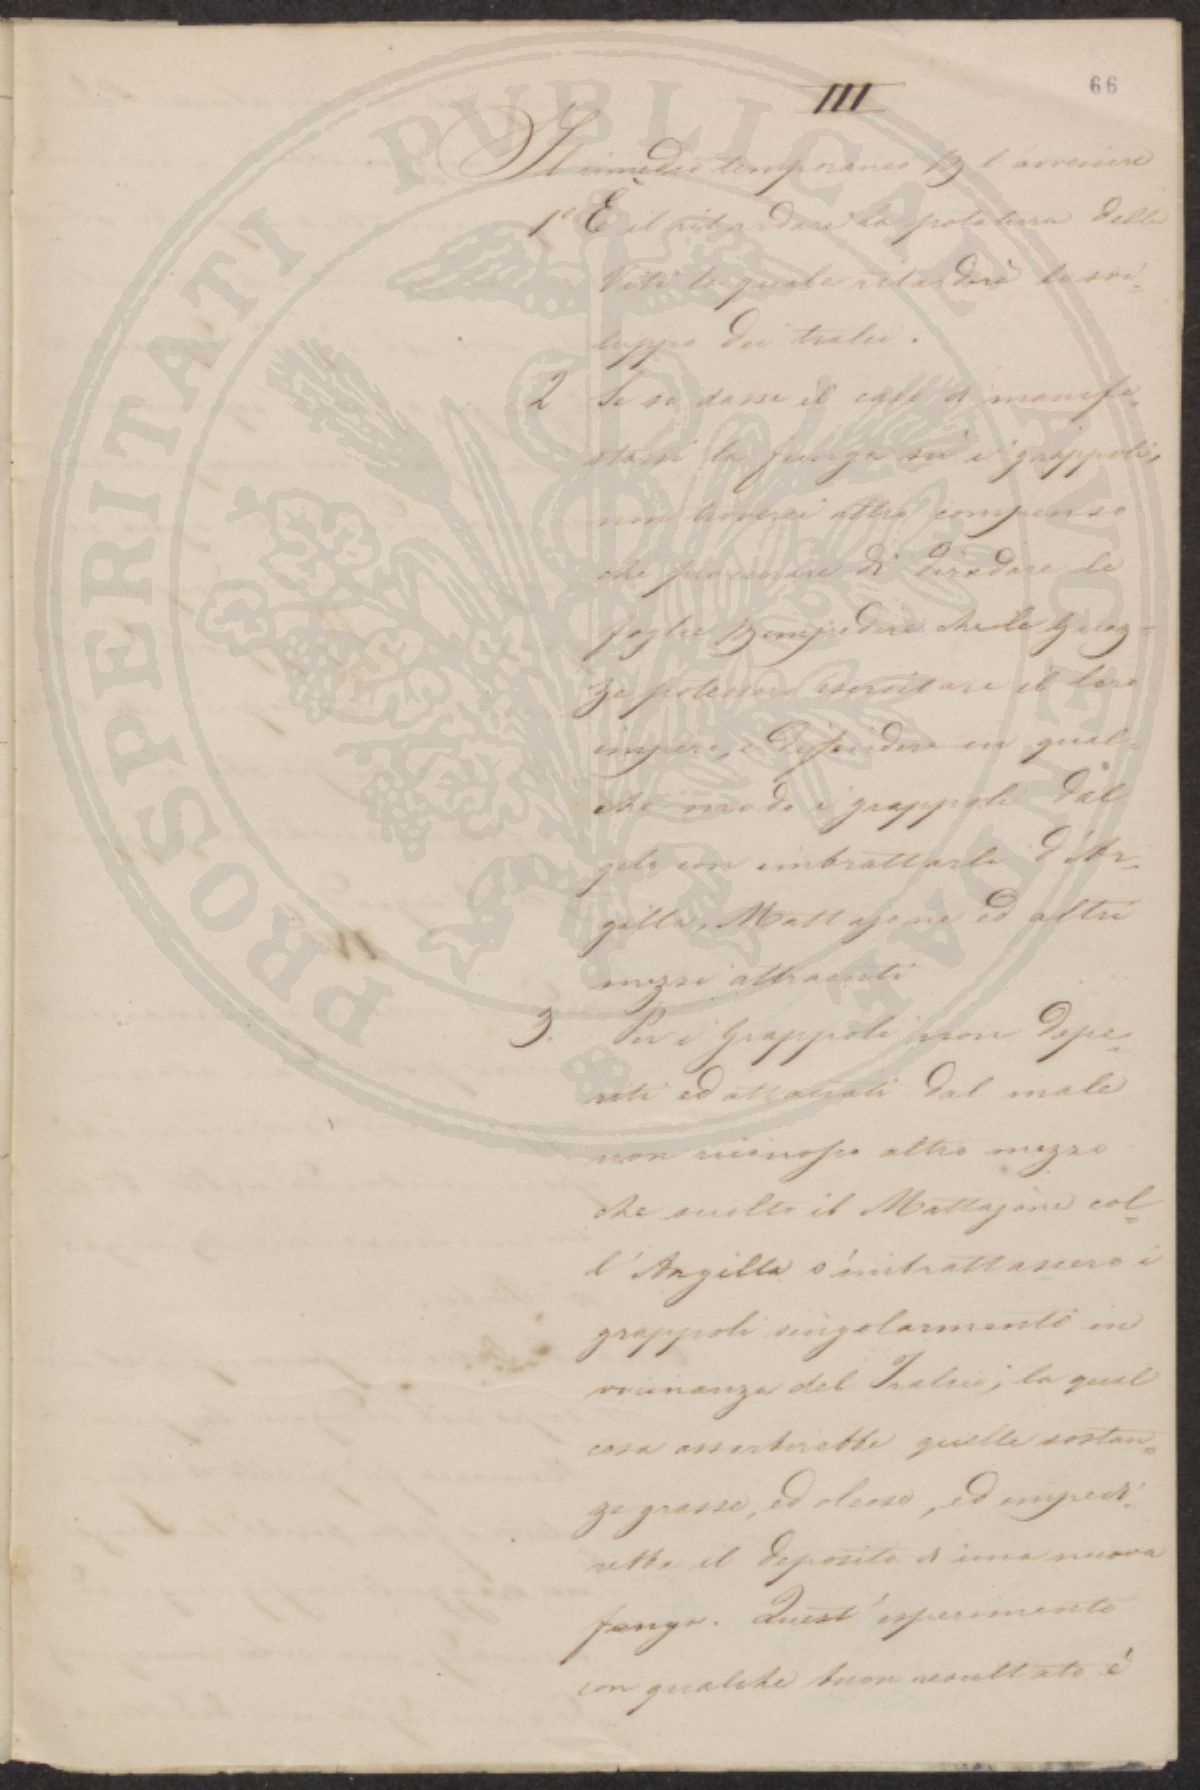 66
III
Il rimedio temporaneo p l'avvenire
1° È il ritardare la potatura delle
Viti la quale retarderà lo svi=
luppo dei tralci.
2 Se si dasse il caso di manife=
starsi la funga su i grappoli,
non troverei altro compenso
che procurare di diradare le
foglie p impedire che le Guaz=
ze potessero esercitare il loro
impero, e difendere in qual=
che modo i grappoli dal
gelo con imbrattarli d'Ar=
gilla, Mattajone ed altri
mezzi attraenti
3. Per i Grappoli non depe=
riti ed attaccati dal male
non altro mezzo
che sciolto il Mattajone col=
l'Argilla s'imbrattassero i
grappoli singolarmente in
vicinanza del Tralcio; la qual
cosa assorbirebbe quelle sostan=
ze grasse, ed oleose, ed impedi=
rebbe il deposito di una nuova
funga. Quest'esperimento
con qualche buon resultato è
PROSPERITATI PUBLICAE AUGENDAE